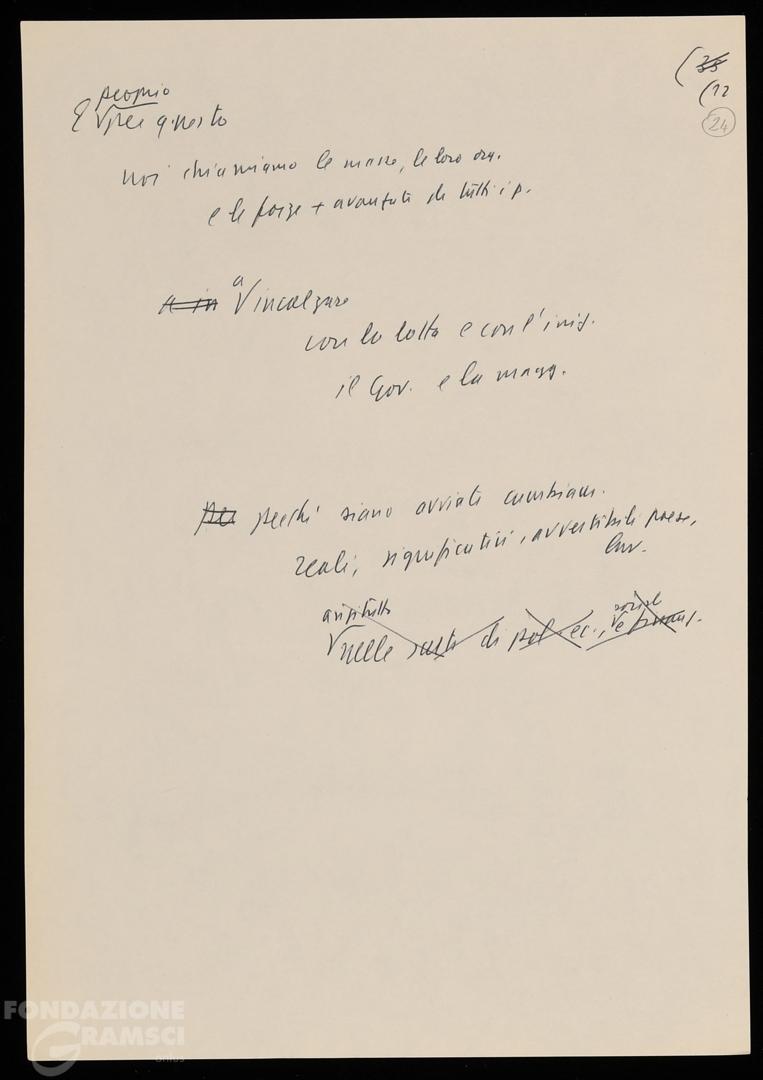 (35
(12
24
proprio
E per questo
noi chiamiamo le masse, le loro org.
e le forze + avanzate di tutti i p.
a in a incalzare
con la lotta e con l'iniz.
il Gov. e la magg.
per perché siano avviati cambiam.
reali, significativi, avvertibili paese,
lav.
anzitutto sociale
nelle scelte di pol. ec., e
FONDAZIONE
GRAMSCI
onlus